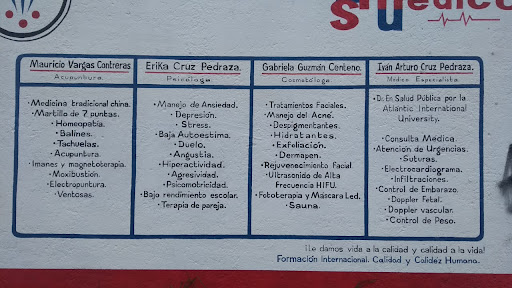 Médico
SU
Mauricio Vargas Contreras
Acupuntura
• Medicina tradicional china.
• Martillo de 7 puntas.
• Homeopatía.
• Balines.
• Tachuelas.
• Acupuntura.
• Imanes y magnetoterapia.
• Moxibustión.
• Electropuntura.
• Ventosas.
Erika Cruz Pedraza.
Psicóloga
• Manejo de Ansiedad.
• Depresión.
• Stress.
• Baja Autoestima.
• Duelo.
• Angustia.
• Hiperactividad.
• Agresividad.
• Psicomotricidad.
• Bajo rendimiento escolar.
• Terapia de pareja.
Gabriela Guzmán Centeno.
Cosmetóloga
• Tratamientos Faciales.
• Manejo del Acné.
• Despigmentantes.
• Hidratantes.
• Exfoliación.
• Dermapen.
• Rejuvenecimiento Facial.
• Ultrasonido de Alta
Frecuencia HIFU.
• Fototerapia y Máscara Led.
• Sauna.
Iván Arturo Cruz Pedraza.
Médico Especialista
• Dr. En Salud Pública por la
Atlantic International
University.
• Consulta Médica.
• Atención de Urgencias.
• Suturas.
• Electrocardiograma.
• Infiltraciones.
• Control de Embarazo.
• Doppler Fetal.
• Doppler vascular.
• Control de Peso.
¡Le damos vida a la calidad y calidad a la vida!
Formación Internacional. Calidad y Calidéz Humana.